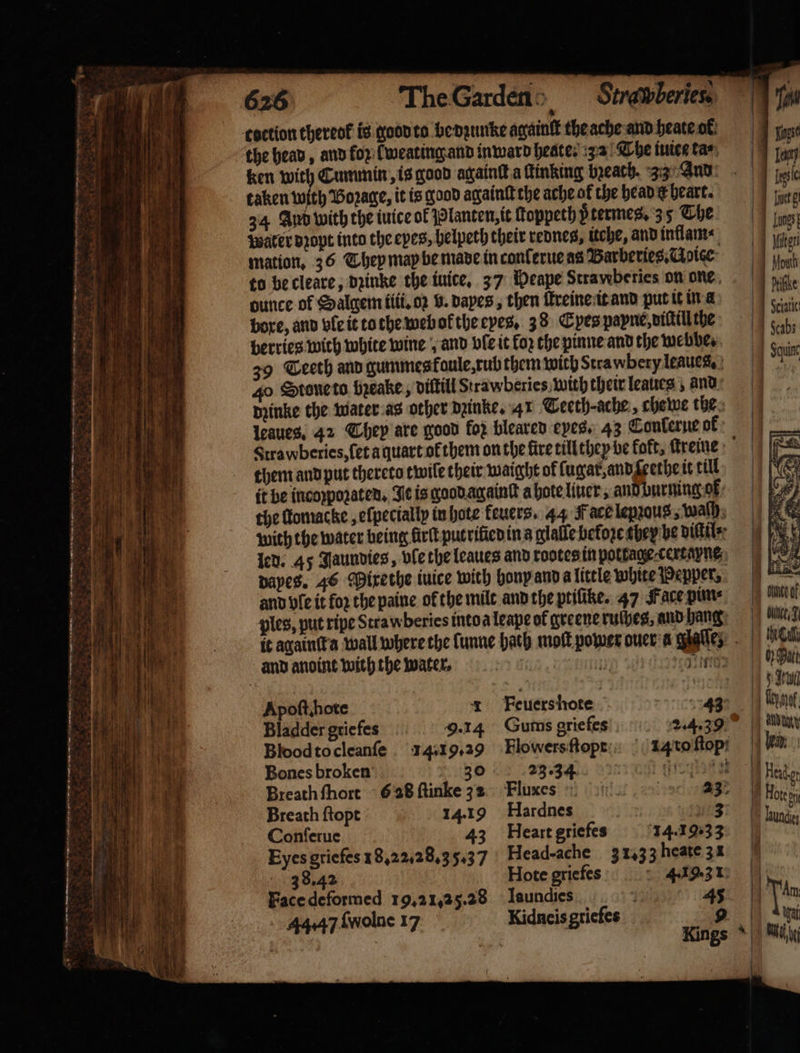 626 The Garden Strawberies.
coction thereof is good to be drunke against the ache and heate of
the head, and for sweating and inward heate. 32 The iuice ta-
ken with Cummin, is good against a stinking breath. 33 And
taken with Borage, it is good against the ache of the head & heart.
34 And with the iuice of Planten, it stoppeth ye termes. 35 The
water dropt into the eyes, helpeth their rednes, itche, and inflam-
mation. 36 They may be made in conserue as Barberies. Voice
to be cleare, drinke the iuice. 37 Heape Strawberies on one
ounce of Salgem iiii. or v. dayes, then streine it and put it in a
boxe, and vse it to the web of the eyes. 38 Eyes payne, distill the
berries with white wine, and vse it for the pinne and the webbe.
39 Teeth and gummes foule, rub them with Strawbery leaues.
40 Stone to breake, distill Strawberies, with their leaues, and
drinke the water as other drinke. 41 Teeth-ache, chewe the
leaues. 42 They are good for bleared eyes. 43 Conserue of
Strawberies, set a quart of them on the fire till they be soft, streine
them and put thereto twise their waight of sugar, and seethe it till
it be incorporated. It is good against a hote liuer, and burning of
the stomacke, especially in hote feuers. 44 Face leprous, wash
with the water being first putrified in a glasse before they be distil-
led. 45 Jaundies, vse the leaues and rootes in pottage certayne
dayes. 46 Mixe the iuice with hony and a little white Pepper,
and vse it for the paine of the milt and the ptisike. 47 Face pim-
ples, put ripe Strawberies into a leape of greene rushes, and hang
it against a wall where the sunne hath most power ouer a glasse,
and anoint with the water.
Apost, hote 1
Bladder griefes 9.14
Blood to cleanse 14.19.29
Bones broken 30
Breath short 6 28 stinke 32
Breath stopt 14.19
Conserue 43
Eyes griefes 18,22,28,35.37
38.42
Face deformed 19,21,25.28
44.47 swolne 17
Feuers hote 43
Gums griefes 2.4.39
Flowers stopt 14 to stop
23.34
Fluxes 23
Hardnes 3
Heart griefes 14.19.33
Head-ache 31.33 heate 31
Hote griefes 4.19.31
Iaundies 45
Kidneis griefes 9
Kings